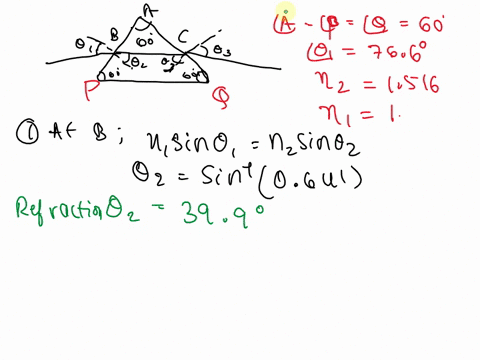 A
B
60°
C
θ1
θ2
θ3
60°
60°
P
Q
∠A - ∠P = ∠Q = 60°
∠θ1 = 76.6°
n2 = 1.516
n1 = 1.
① At B ; n1 sinθ1 = n2 sinθ2
θ2 = Sin⁻¹(0.641)
Refraction θ2 = 39.9°